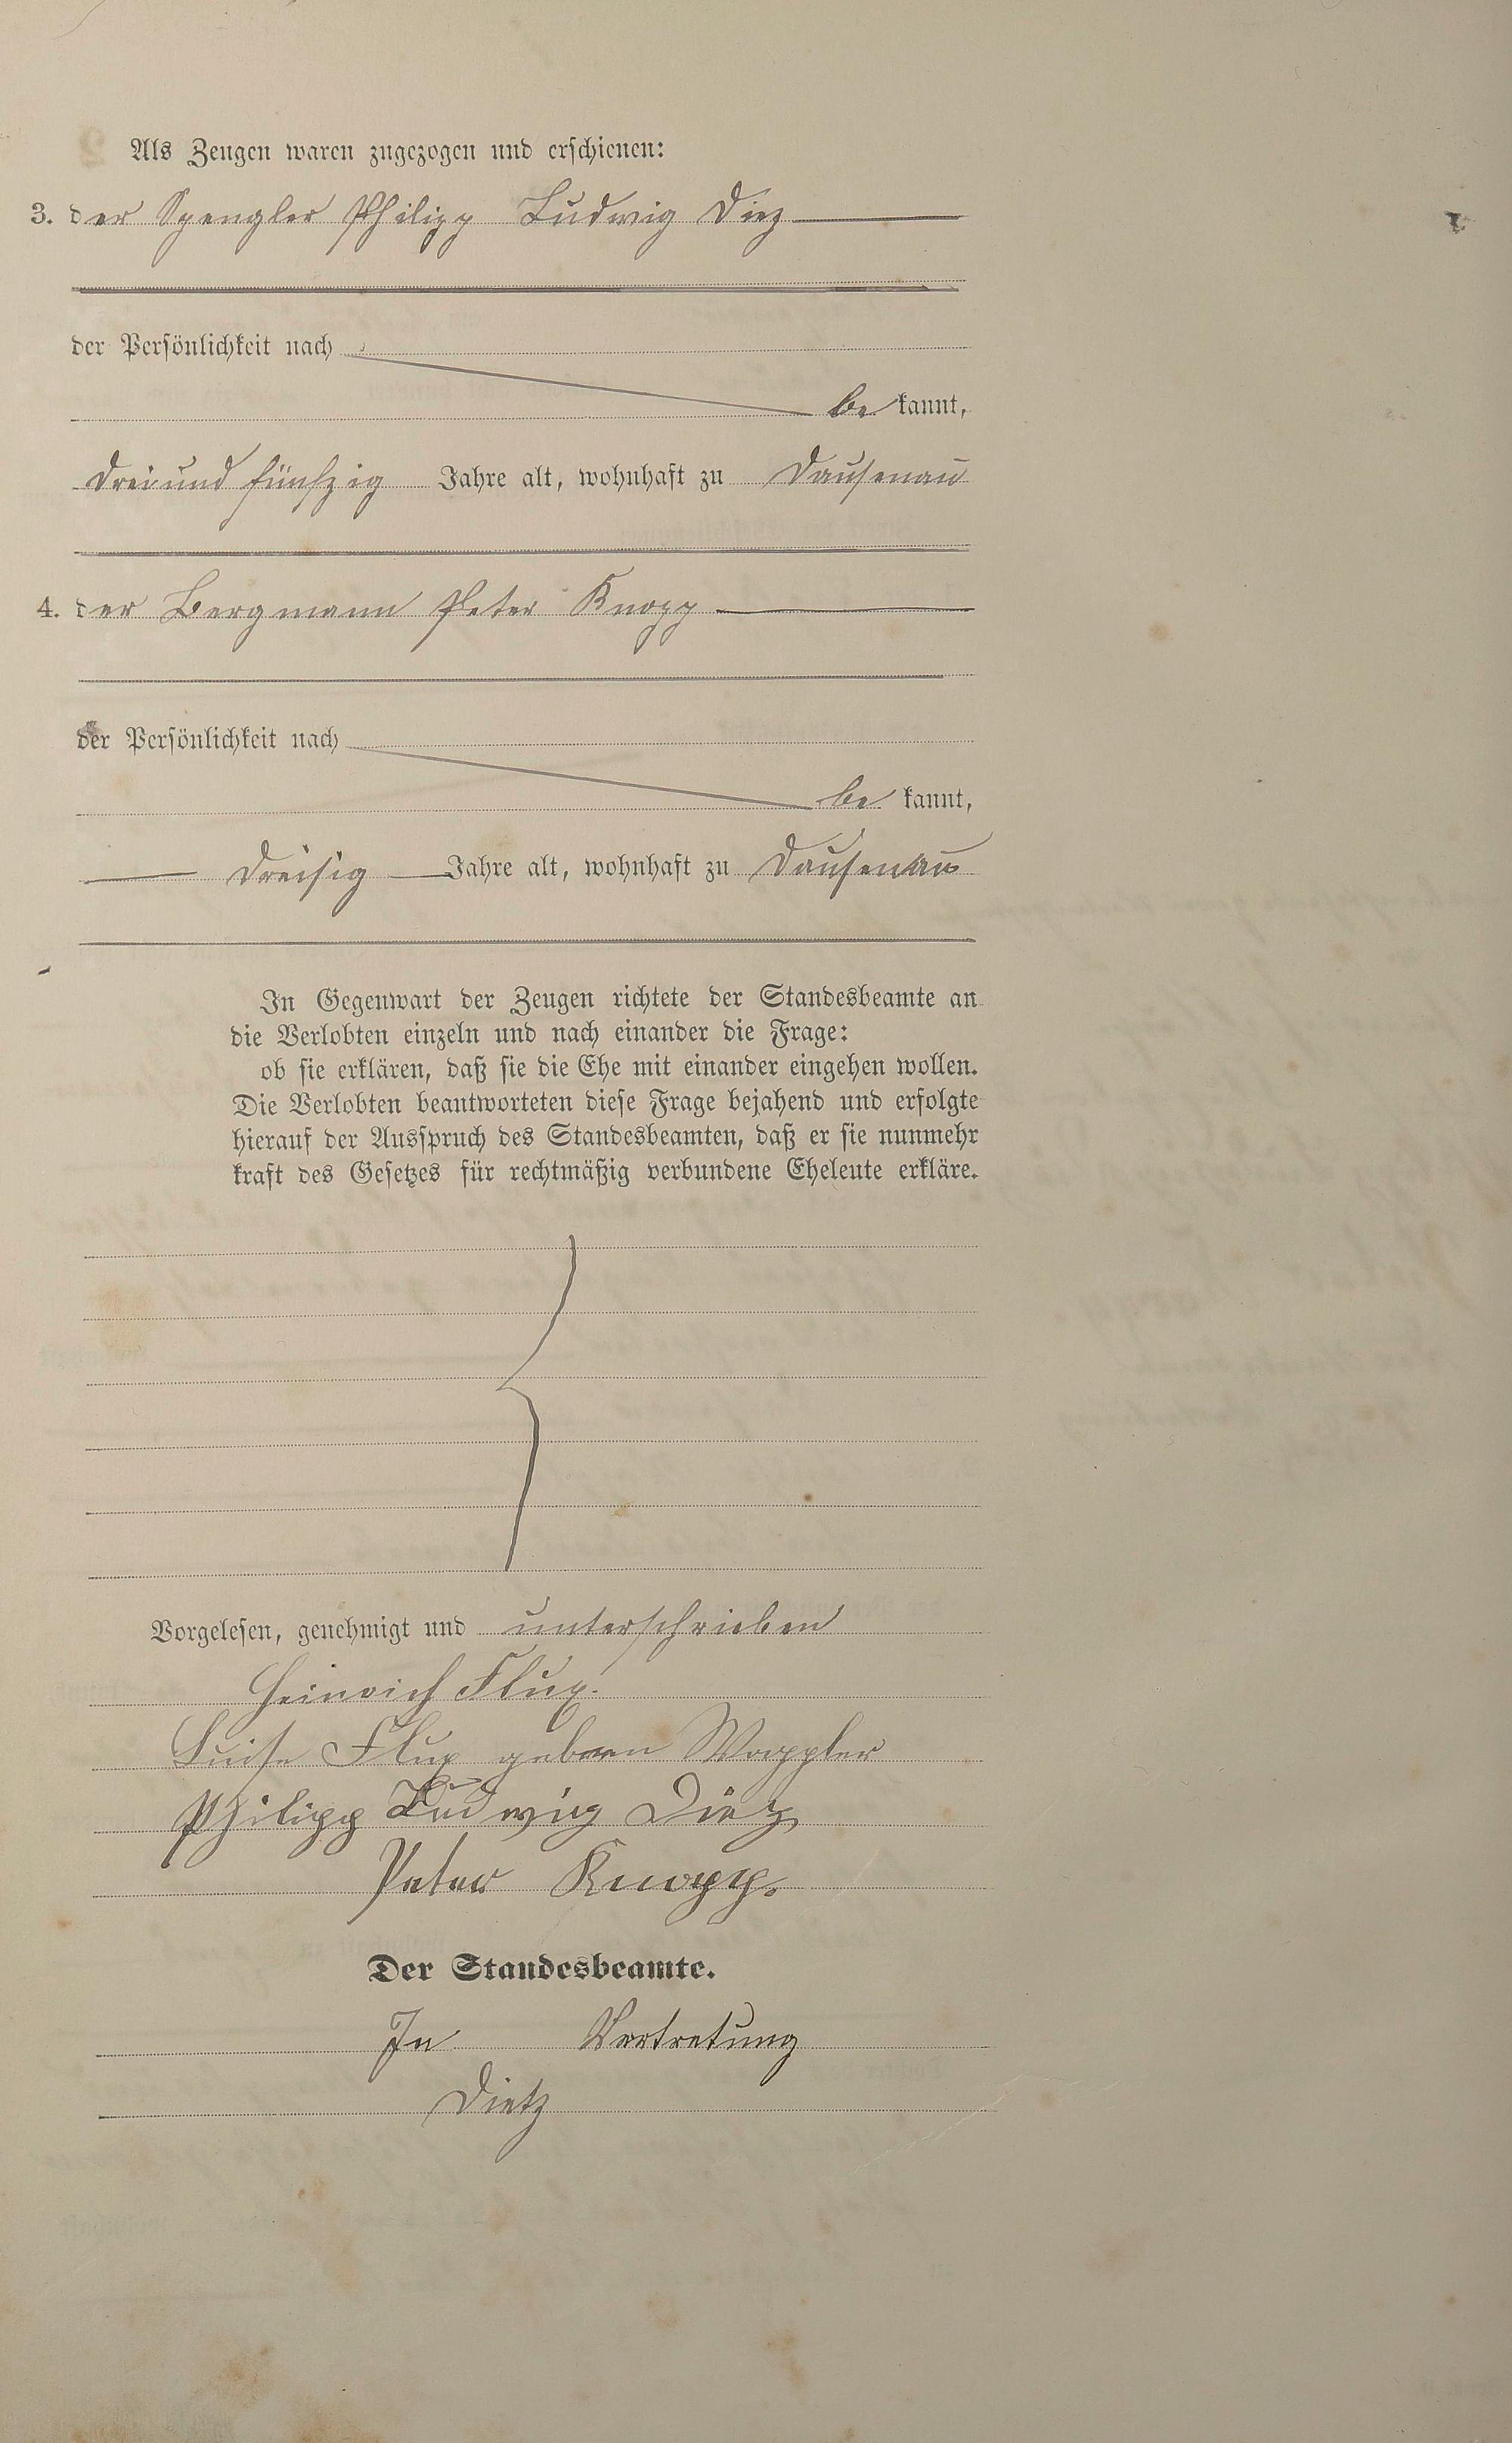 Als Zeugen waren zugezogen und erschienen:
3. der Spengler Philipp Ludwig Diez
der Persönlichkeit nach
be kannt,
dreiundfünfzig Jahre alt, wohnhaft zu Dausenau
4. der Bergmann Peter Knopp
der Persönlichkeit nach
be kannt,
dreisig Jahre alt, wohnhaft zu Dausenau
In Gegenwart der Zeugen richtete der Standesbeamte an
die Verlobten einzeln und nach einander die Frage:
ob sie erklären, daß sie die Ehe mit einander eingehen wollen.
Die Verlobten beantworteten diese Frage bejahend und erfolgte
hierauf der Ausspruch des Standesbeamten, daß er sie nunmehr
kraft des Gesetzes für rechtmäßig verbundene Eheleute erkläre.
Vorgelesen, genehmigt und unterschrieben
Heinrich Flux.
Luise Flux geboren Wappler
Philipp Ludwig Diez
Peter Knopp.
Der Standesbeamte.
In Vertretung
Dietz